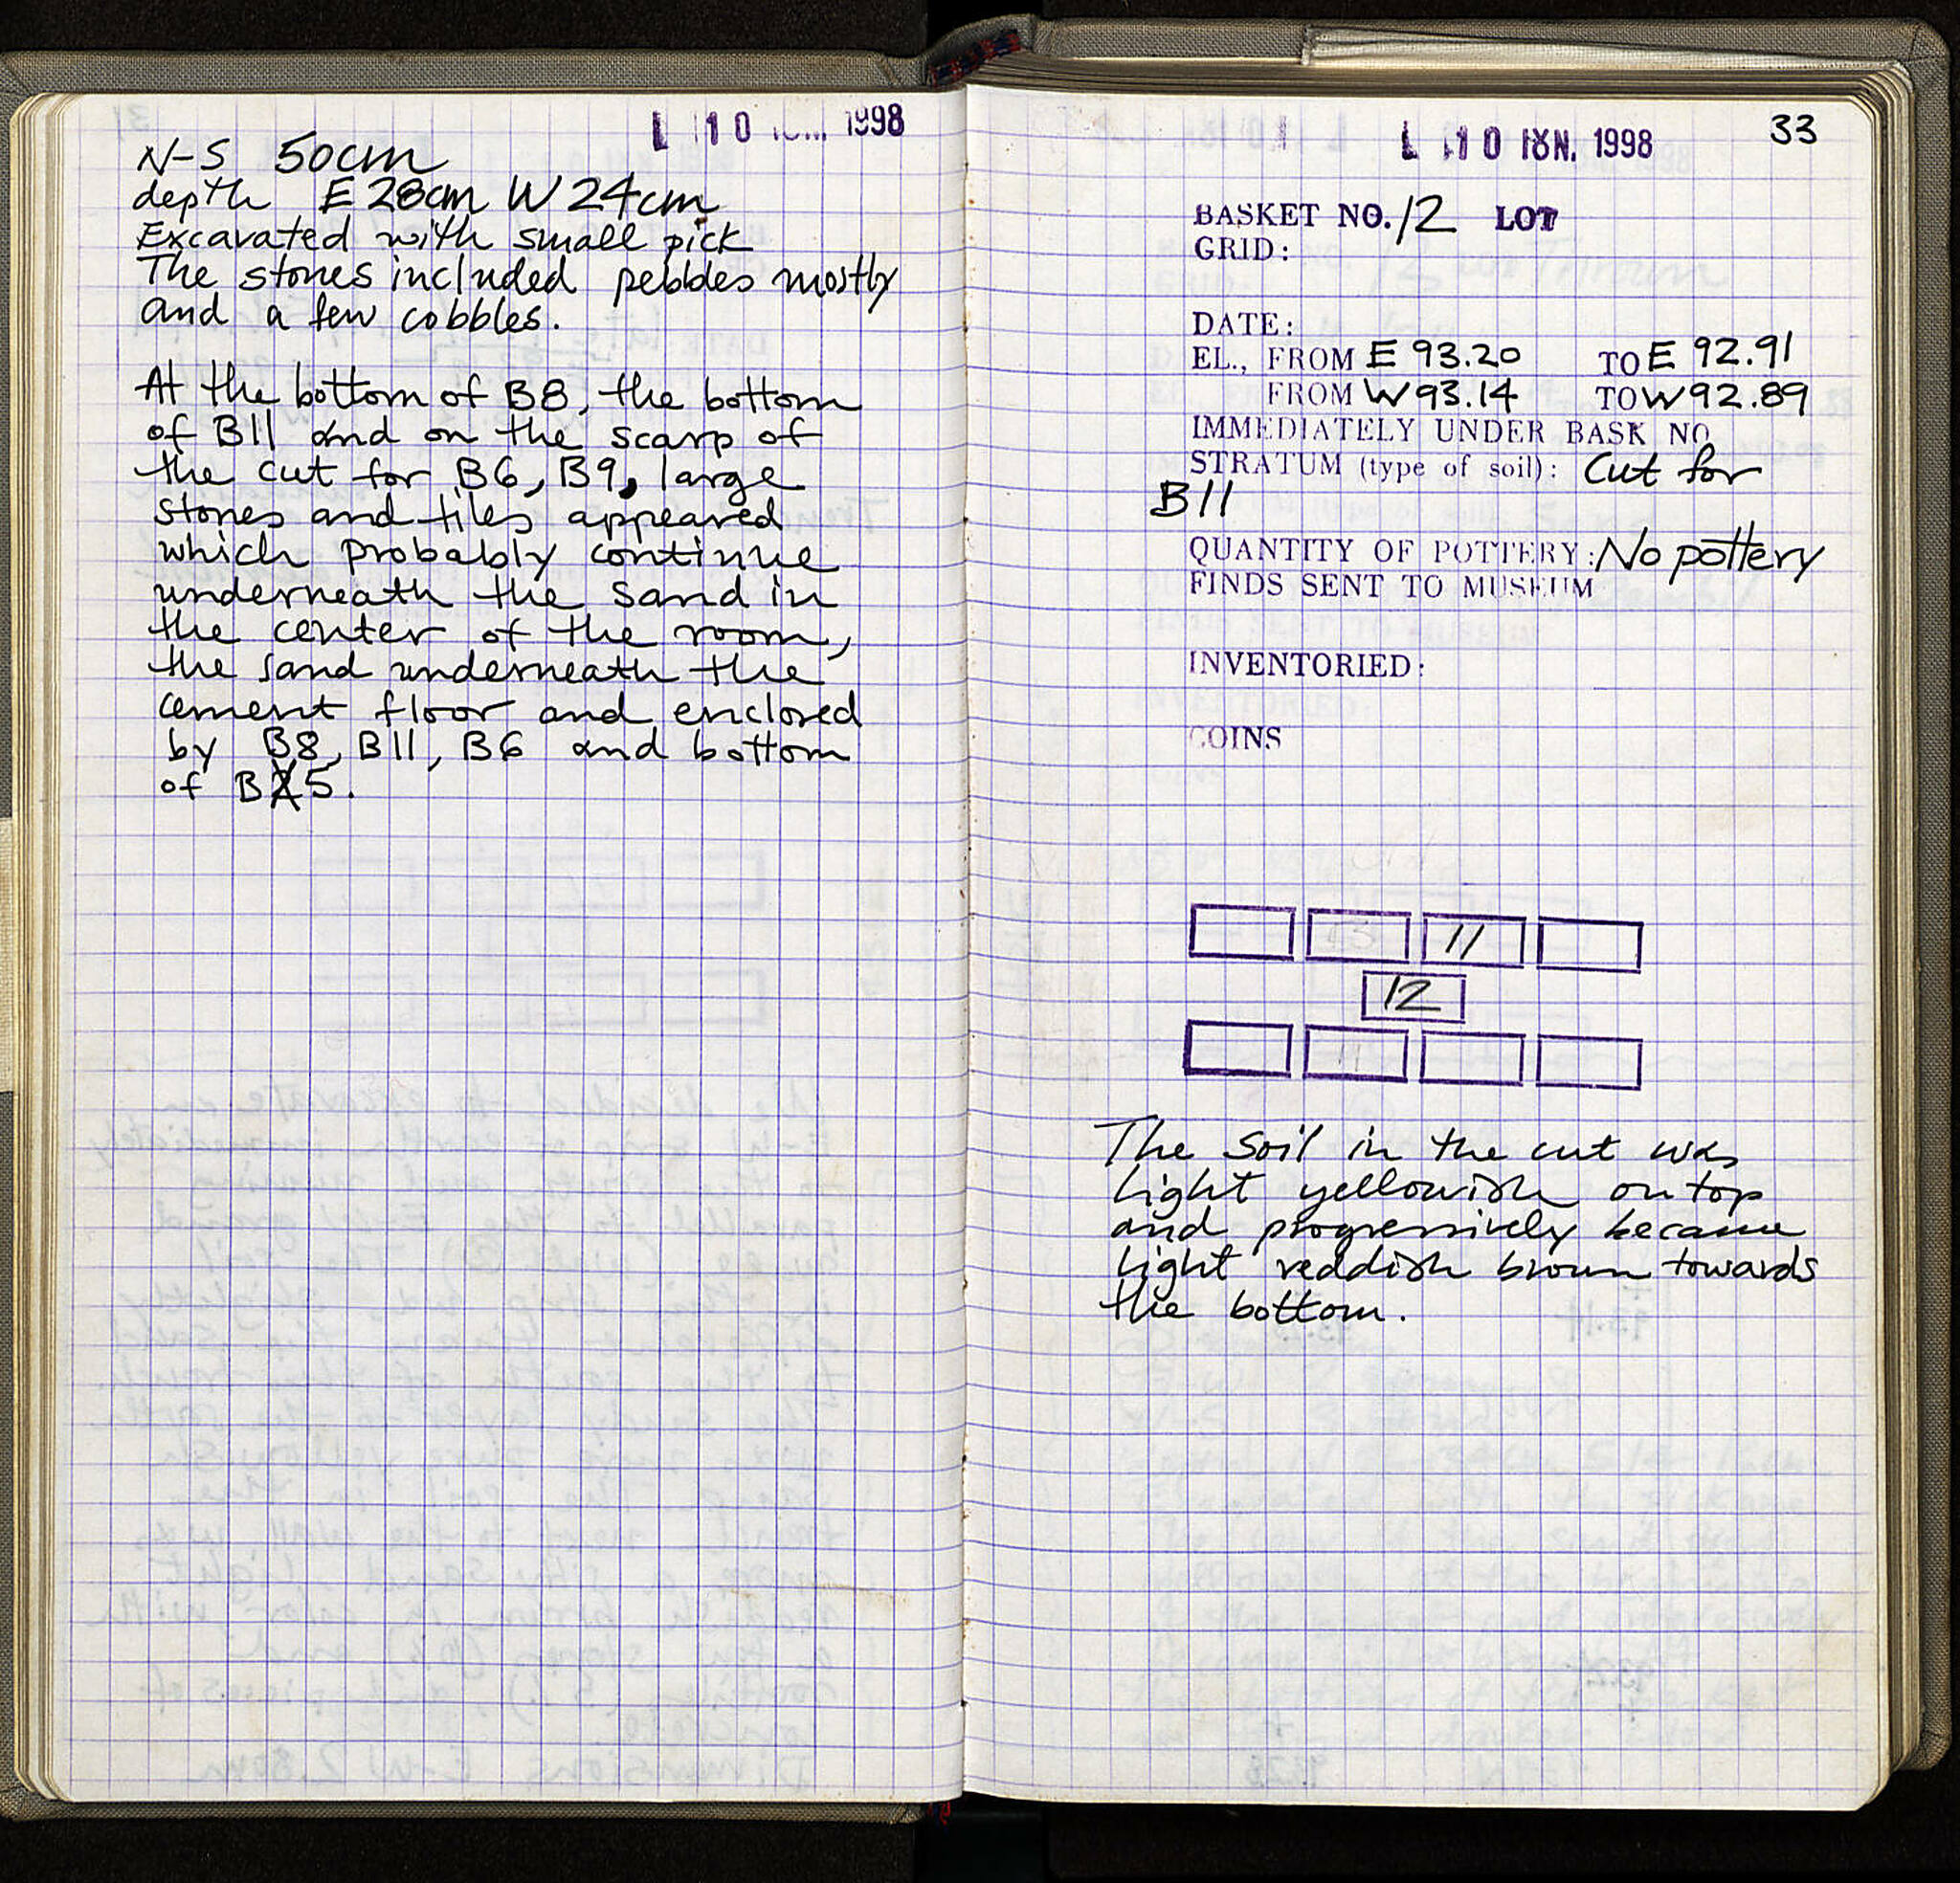 10 1998
N-S 50cm
depth E 28cm W 24cm
Excavated with small pick
The stones included pebbles mostly
and a few cobbles.
At the bottom of B8, the bottom
of B11 and on the scarp of
the cut for B6, B9, large
stones and tiles appeared
which probably continue
underneath the sand in
the center of the room,
the sand underneath the
cement floor and enclosed
by B8, B11, B6 and bottom
of B5.
10 ΙΟΥΝ. 1998
33
BASKET NO. 12 LOT
GRID:
DATE:
EL., FROM E 93.20 TO E 92.91
FROM W 93.14 TO W 92.89
IMMEDIATELY UNDER BASK NO
STRATUM (type of soil): Cut for
B11
QUANTITY OF POTTERY: No pottery
FINDS SENT TO MUSEUM
INVENTORIED:
COINS
13 11
12
11
The soil in the cut was
light yellowish on top
and progressively became
light reddish brown towards
the bottom.